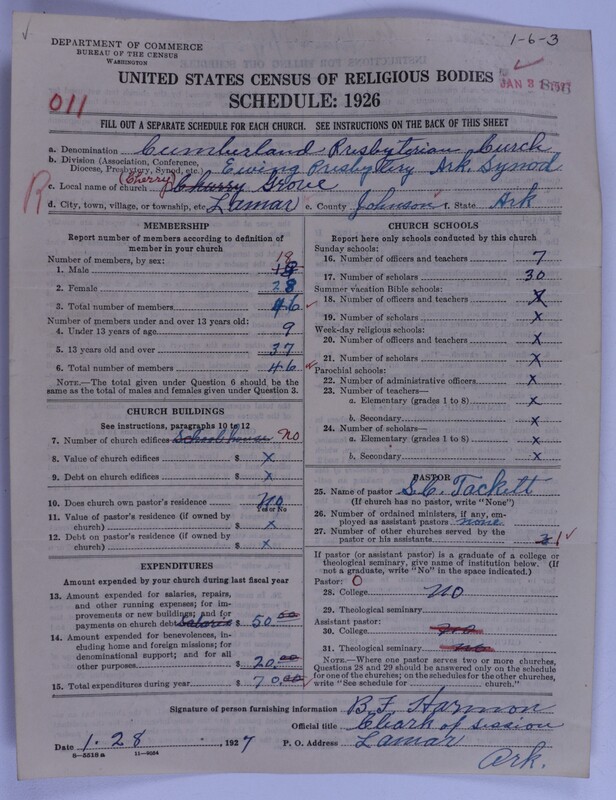 1-6-3
DEPARTMENT OF COMMERCE
BUREAU OF THE CENSUS
WASHINGTON
UNITED STATES CENSUS OF RELIGIOUS BODIES
JAN 31
SCHEDULE: 1926
011
FILL OUT A SEPARATE SCHEDULE FOR EACH CHURCH. SEE INSTRUCTIONS ON THE BACK OF THIS SHEET
a. Denomination Cumberland Presbyterian Curch
b. Division (Association, Conference, Diocese, Presbytery, Synod, etc.) Ewing Presbytery Ark. Synod
R c. Local name of church Cherry Churry Grove
d. City, town, village, or township, etc. Lamar e. County Johnson f. State Ark
MEMBERSHIP
Report number of members according to definition of
member in your church
Number of members, by sex:
1. Male 18
2. Female 28
3. Total number of members 46
Number of members under and over 13 years old:
4. Under 13 years of age 9
5. 13 years old and over 37
6. Total number of members 46
NOTE.—The total given under Question 6 should be the
same as the total of males and females given under Question 3.
CHURCH BUILDINGS
See instructions, paragraphs 10 to 12
7. Number of church edifices School house no
8. Value of church edifices $ x
9. Debt on church edifices $ x
10. Does church own pastor's residence no
Yes or No
11. Value of pastor's residence (if owned by
church) $ x
12. Debt on pastor's residence (if owned by
church) $ x
EXPENDITURES
Amount expended by your church during last fiscal year
13. Amount expended for salaries, repairs,
and other running expenses; for im-
provements or new buildings; and for
payments on church debt Salarie $ 50.00
14. Amount expended for benevolences, in-
cluding home and foreign missions; for
denominational support; and for all
other purposes $ 20.00
15. Total expenditures during year $ 70.00
CHURCH SCHOOLS
Report here only schools conducted by this church
Sunday schools:
16. Number of officers and teachers 7
17. Number of scholars 30
Summer vacation Bible schools:
18. Number of officers and teachers x
19. Number of scholars x
Week-day religious schools:
20. Number of officers and teachers x
21. Number of scholars x
Parochial schools:
22. Number of administrative officers x
23. Number of teachers—
a. Elementary (grades 1 to 8) x
b. Secondary x
24. Number of scholars—
a. Elementary (grades 1 to 8) x
b. Secondary x
PASTOR
25. Name of pastor S.C. Tackett
(If church has no pastor, write "None")
26. Number of ordained ministers, if any, em-
ployed as assistant pastors none
27. Number of other churches served by the
pastor or his assistants 1
If pastor (or assistant pastor) is a graduate of a college or
theological seminary, give name of institution below. (If
not a graduate, write "No" in the space indicated.)
Pastor: 0
28. College no
29. Theological seminary
Assistant pastor:
30. College no
31. Theological seminary no
NOTE.—Where one pastor serves two or more churches,
Questions 28 and 29 should be answered only on the schedule
for one of the churches; on the schedules for the other churches,
write "See schedule for church."
Signature of person furnishing information B.F. Harmon
Official title Clark of session
Date 1-28, 1927 P. O. Address Lamar
Ark.
8—5518 a 11—9064